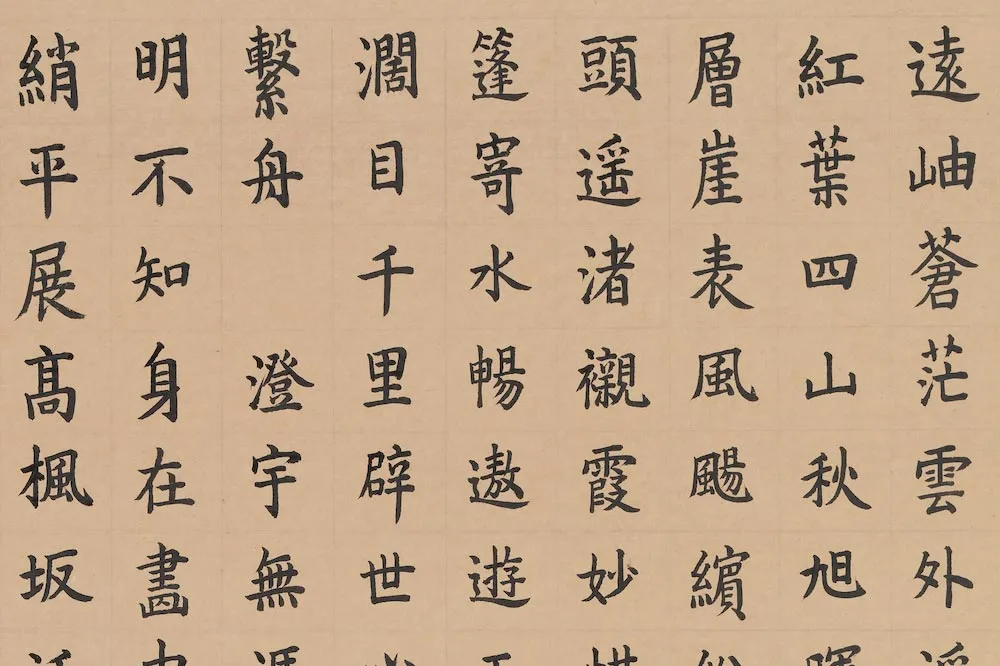 遠岫蒼茫雲外
紅葉四山秋旭
層崖表風颺繽
頭遥渚襯霞妙
篷寄水暢遨遊
濶目千里辟世
繫舟 澄宇無
明不知身在畵
綃平展髙楓坂